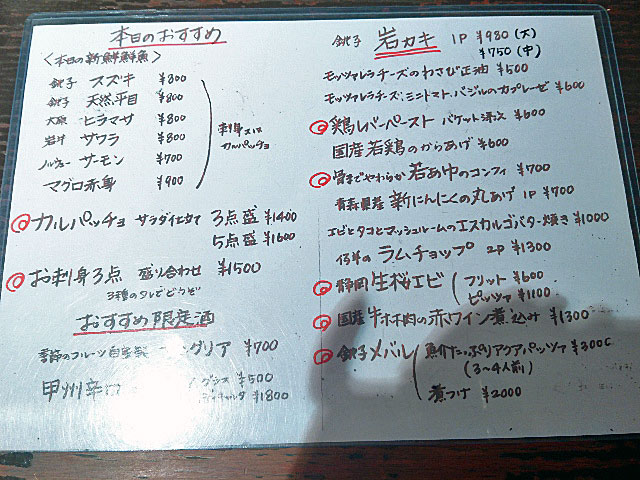 本日のおすすめ
〈本日の新鮮鮮魚〉
銚子 スズキ ¥800
銚子 天然平目 ¥800
大原 ヒラマサ ¥800
岩井 サワラ ¥800
ノルウェー サーモン ¥700
マグロ赤身 ¥900
刺身又は
カルパッチョ
◎カルパッチョ サラダ仕立て 3点盛 ¥1400
5点盛 ¥1600
◎お刺身3点 盛り合わせ ¥1500
3種のタレでどうぞ
おすすめ限定酒
季節のフルーツ自家製 グリア ¥700
甲州辛口 グラス ¥500
デキャンタ ¥1800
銚子 岩カキ 1P ¥980(大)
¥750(中)
モッツァレラチーズのわさび正油 ¥500
モッツァレラチーズ、ミニトマト、バジルのカプレーゼ ¥600
◎鶏レバーペースト バケット添え ¥600
国産若鶏のからあげ ¥600
◎骨までやわらか若あゆのコンフィ ¥700
青森県産 新にんにくの丸あげ 1P ¥700
エビとタコとマッシュルームのエスカルゴバター焼き ¥1000
仔羊のラムチョップ 2P ¥1300
◎静岡 生桜エビ フリット ¥600
ピッツァ ¥1100
◎国産牛ホホ肉の赤ワイン煮込み ¥1300
◎銚子メバル 魚介たっぷりアクアパッツァ ¥3000
(3〜4人前)
煮つけ ¥2000